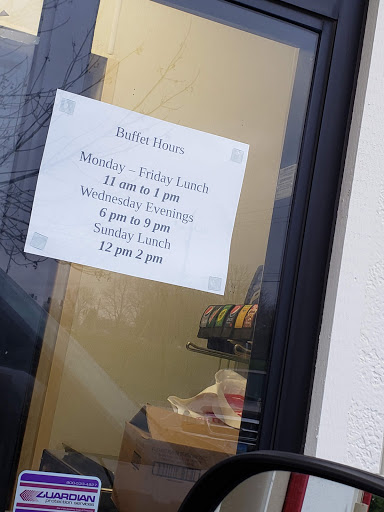 Buffet Hours
Monday – Friday Lunch
11 am to 1 pm
Wednesday Evenings
6 pm to 9 pm
Sunday Lunch
12 pm 2 pm
GUARDIAN
protection services